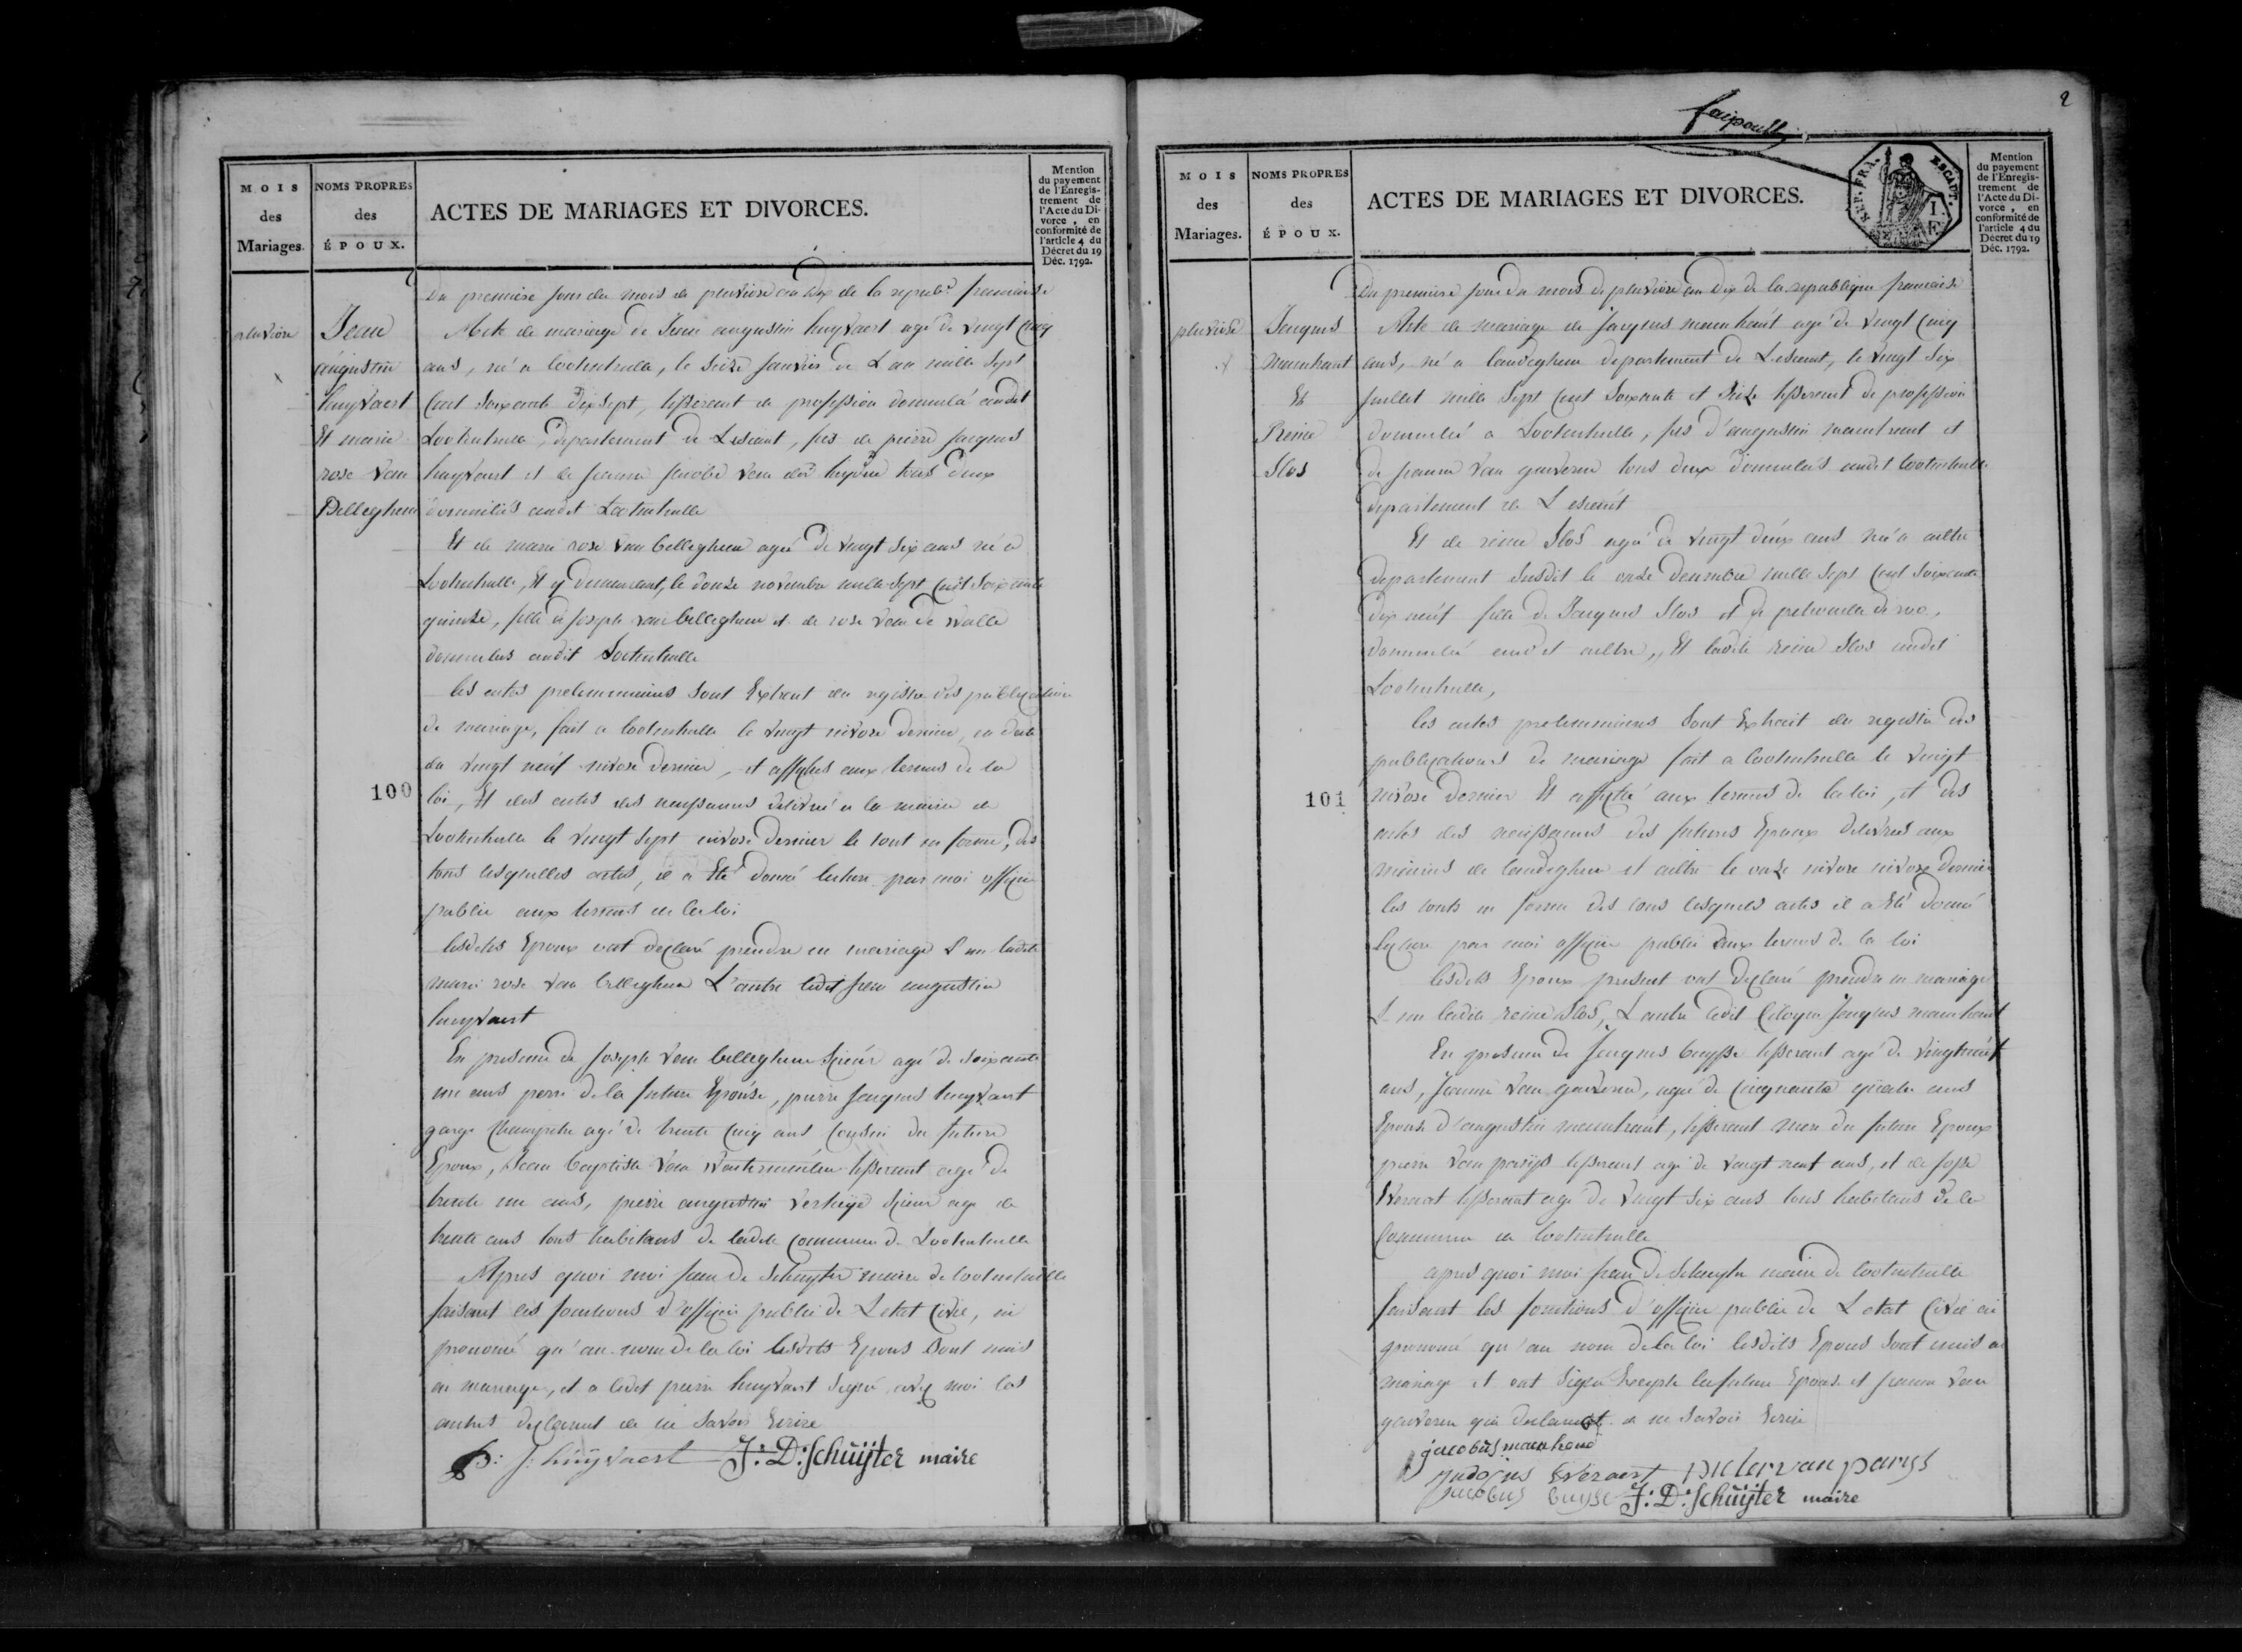 MOIS
des
Mariages.
NOMS PROPRES
des
ÉPOUX.
ACTES DE MARIAGES ET DIVORCES.
Mention
du payement
de l'Enregis-
trement de
l'Acte du Di-
vorce, en
conformité de
l'article 4 du
Décret du 19
Déc. 1792.
pluviose
Jean
augustin
huyvaert
Et marie
rose van
Belleghem
100
Du premiere jour du mois de pluviose an dix de la repub.e francaise
Acte de mariage de Jean augustin huyvaert agé de vingt cinq
ans, né a lootenhulle, le seize janvier de L'an mille sept
Cent soixante dix sept, tisserant de profession domicilié audit
Lootenhulle, departement de Lescaut, fils de pierre jacques
huyvaert et de jeanne jacobe van tous deux
domiciliés audit Lootenhulle
Et de marie rose van belleghem agée de vingt six ans né a
Lootenhulle, Et y demeurant, le douze novembre mille sept Cent soixante
quinze, fille de joseph van belleghem et de rose van de walle
domicilies audit Lootenhulle
les actes preliminaires sont Extrait du registre des publication
de mariage, fait a lootenhulle le vingt nivose dernier, en date
du vingt neuf nivose dernier, et affiches aux termes de la
loi, Et des actes des naissances delivré a la mairie de
Lootenhulle le vingt sept nivose dernier le tout en forme, des
tous lesquelles actes, il a Eté donné lecture par moi officie
publie aux termes de la loi
lesdites Epoux ont declaré prendre en mariage L'un ladite
marie rose van belleghem L'autre ledit jean augustin
huyvaert
En presence de joseph van belleghem agé de soixante
un ans pere de la future Epouse, pierre jacques huyvaert
garge Champetre agé de trente cinq ans cousin du future
Epoux, Jean baptiste van tisserant agé de
trente un ans, pierre augustin age de
trente ans tous habitans de ladite Commune de Lootenhulle
Apres quoi moi jean De Schuyter maire de lootenhulle
faisant les fonctions d'officie publie de L'etat Civil, ai
prononcé qu'au nom de la loi lesdits Epous sont unis
en mariage, et a ledit pierre huyvaert signé avec moi les
autres declarent de ne savoir Ecrire
P: J: huyvaert J: D: Schuÿter maire
faipoult
2
MOIS
des
Mariages.
NOMS PROPRES
des
ÉPOUX.
ACTES DE MARIAGES ET DIVORCES.
REP. FRA. ESCAUT.
Mention
du payement
de l'Enregis-
trement de
l'Acte du Di-
vorce, en
conformité de
l'article 4 du
Décret du 19
Déc. 1792.
pluviose
Jacques
Et
Reine
Slos
101
Du premiere jour du mois de pluviose an dix de la republique francaise
Acte de mariage de Jacques agé de vingt cinq
ans, né a landeghem departement de Lescaut, le vingt six
juillet mille sept cent soixante et seize tisserant de profession
domicilié a Lootenhulle, fils d'augustin et
de jeanne van gaveren tous deux domiciliés audit lootenhulle
departement de Lescaut
Et de reine Slos agé de vingt deux ans né a aeltre
departement susdit le onze decembre mille sept Cent soixante
dix neuf fille de Jacques Slos et de petronille
domicilié audit aeltre, Et ladite reine Slos audit
Lootenhulle,
les actes preliminaires sont Extrait du registre des
publications de mariage fait a lootenhulle le vingt
nivose dernier Et affiché aux termes de la loi, et des
actes des naissances des futures Epoux delivrés aux
mairies de landeghem et aeltre le onze nivose nivose dernier
les touts en forme des tous lesquels actes il a Eté donné
lecture par moi officie publie aux termes de la loi
lesdits Epoux present ont declaré prendre en mariage
L'un ladite reine Slos, L'autre ledit Citoyen Jacques
En presence de Jacques buysse tisserant agé de vingtneuf
ans, Jeanne van gaveren, agée de Cinquante quatre ans
Epouse d'augustin tisserant mere du future Epoux
pierre van parijs tisserant agé de vingt neuf ans, et de josse
Everaert tisserant age de vingt six ans tous habitans de la
Commune de lootenhulle
apres quoi moi jean De Schuyter maire de lootenhulle
faisant les fonctions d'officie publie de L'etat Civil ai
prononcé qu'au nom de la loi lesdits Epous sont unis en
mariage et ont signé Excepte la future Epouse et jeanne van
gaveren qui declarent de ne savoir Ecrire
jacobus
Judocus Everaert pieter van parijs
Jacobus buysse J: D: Schuÿter maire